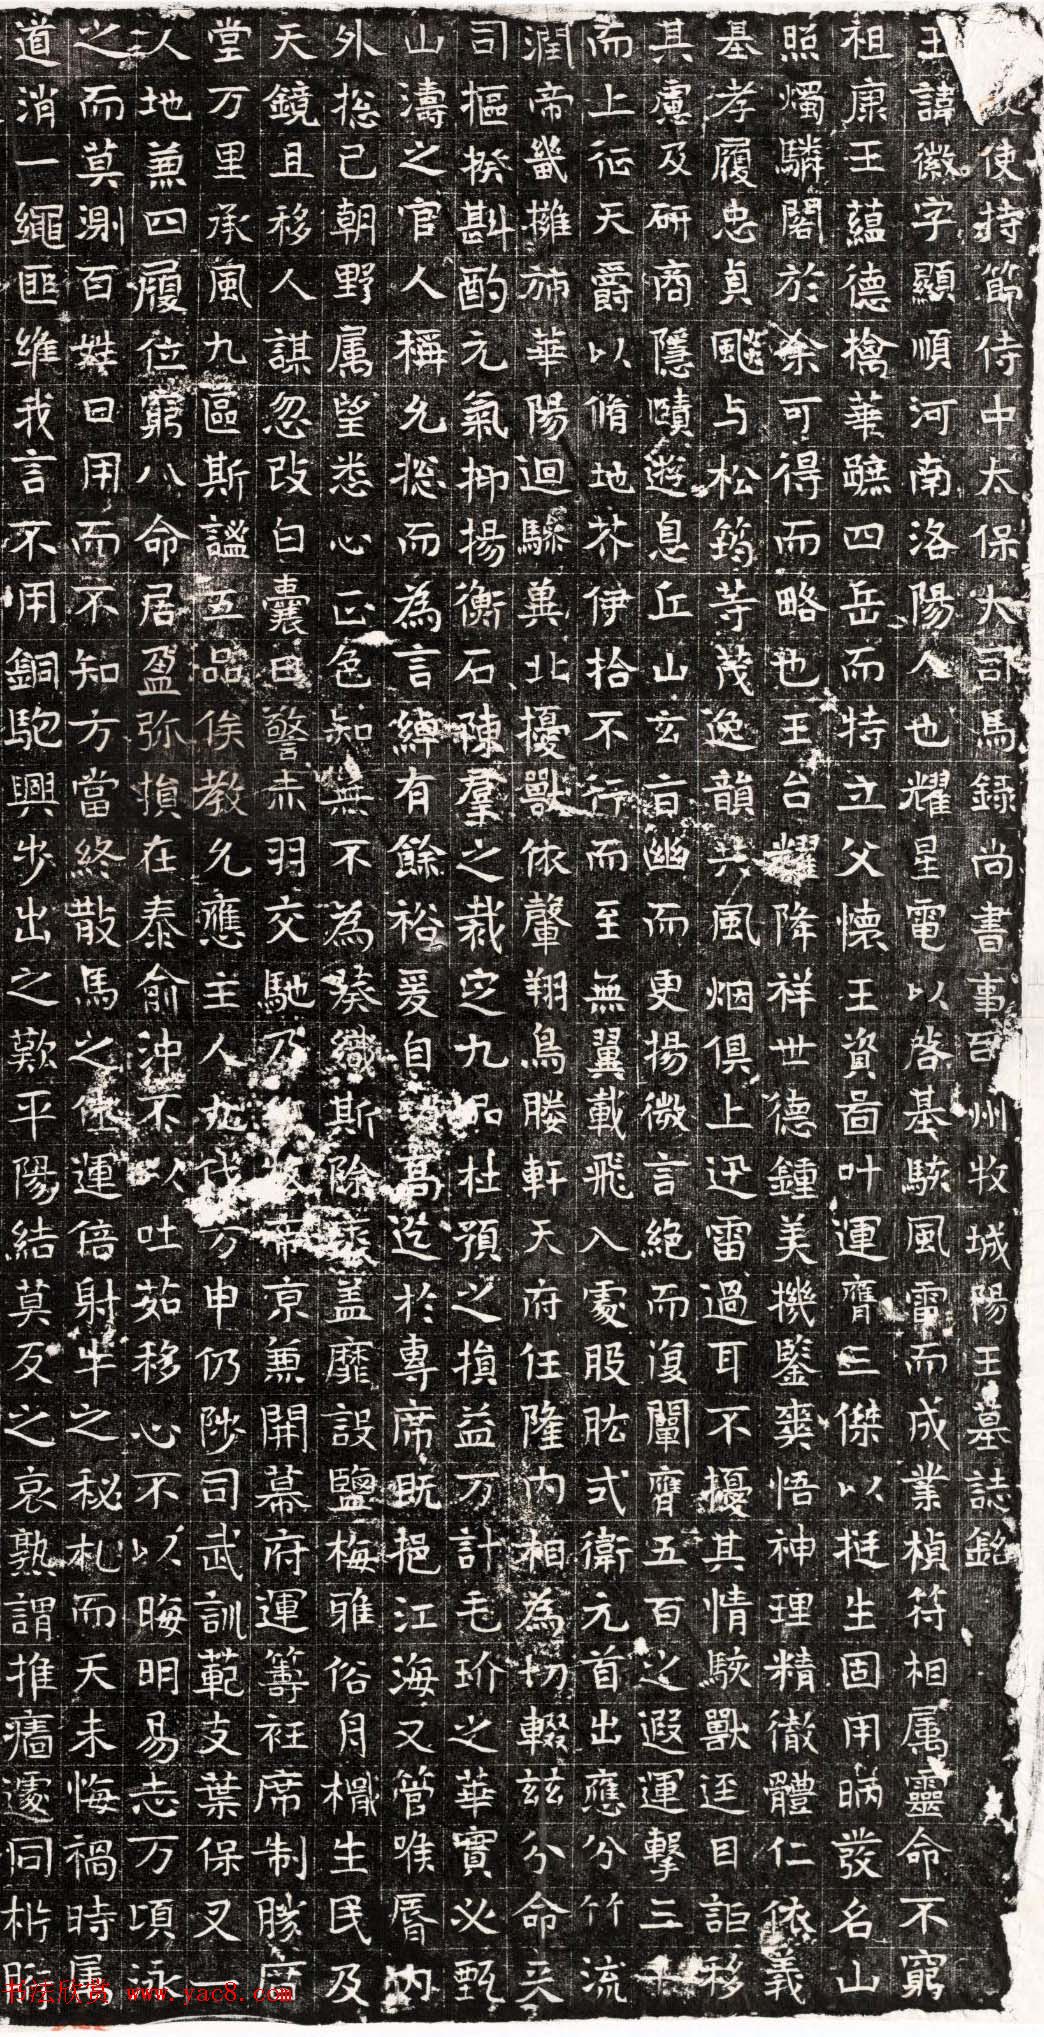 使持節侍中太保大司馬録尚書事司州牧城陽王墓誌銘
王諱徽字顯順河南洛陽人也耀星電以啓基駭風雷而成業楨符相属靈命不窮
祖康王蘊德摛華蹠四岳而特立父懷王資啚叶運膺三傑以挺生固用昞發名山
照燭驎閣於余可得而略也王台耀降祥世德鍾美機鑒爽悟神理精徹體仁依義
基孝履忠貞飈与松筠等茂逸韻共風烟俱上迅雷過耳不擾其情駭獸逕目詎移
其慮及研商隱賾遊息丘山玄旨幽而更揚微言絕而復闡膺五百之遐運擊三千
而上征天爵以脩地芥伊拾不行而至無翼載飛入處股肱式衛元首出應分竹流
潤帝畿擁旆華陽迴驂冀北擾獸依輦翔鳥媵軒天府任隆內相為切輟兹分命天
司摳揆斟酌元氣抑揚衡石陳羣之裁定九品杜預之損益万計毛玠之華實必甄
山濤之官人稱允揔而為言綽有餘裕爰自高迄於專席既挹江海又管喉脣內
外揔己朝野属望悉心正色知無不為纖斯除盖靡設鹽梅雅俗舟檝生民及
天鏡且移人謀忽改白囊日警赤羽交馳乃牧帝京兼開幕府運籌衽席制勝
堂万里承風九區斯謐五品俟教允應主人九伐方申仍陟司武訓範支葉保乂一
人地兼四履位窮八命居盈弥損在泰愈沖不以吐茹移心不以晦明易志万頃泳
之而莫測百姓日用而不知方當終散馬之運倍射牛之秘札而天未悔禍時属
道消一繩匪維我言不用銅駞興步出之歎平陽結莫反之哀孰謂推廧遽同析
书法欣赏 www.yac8.com